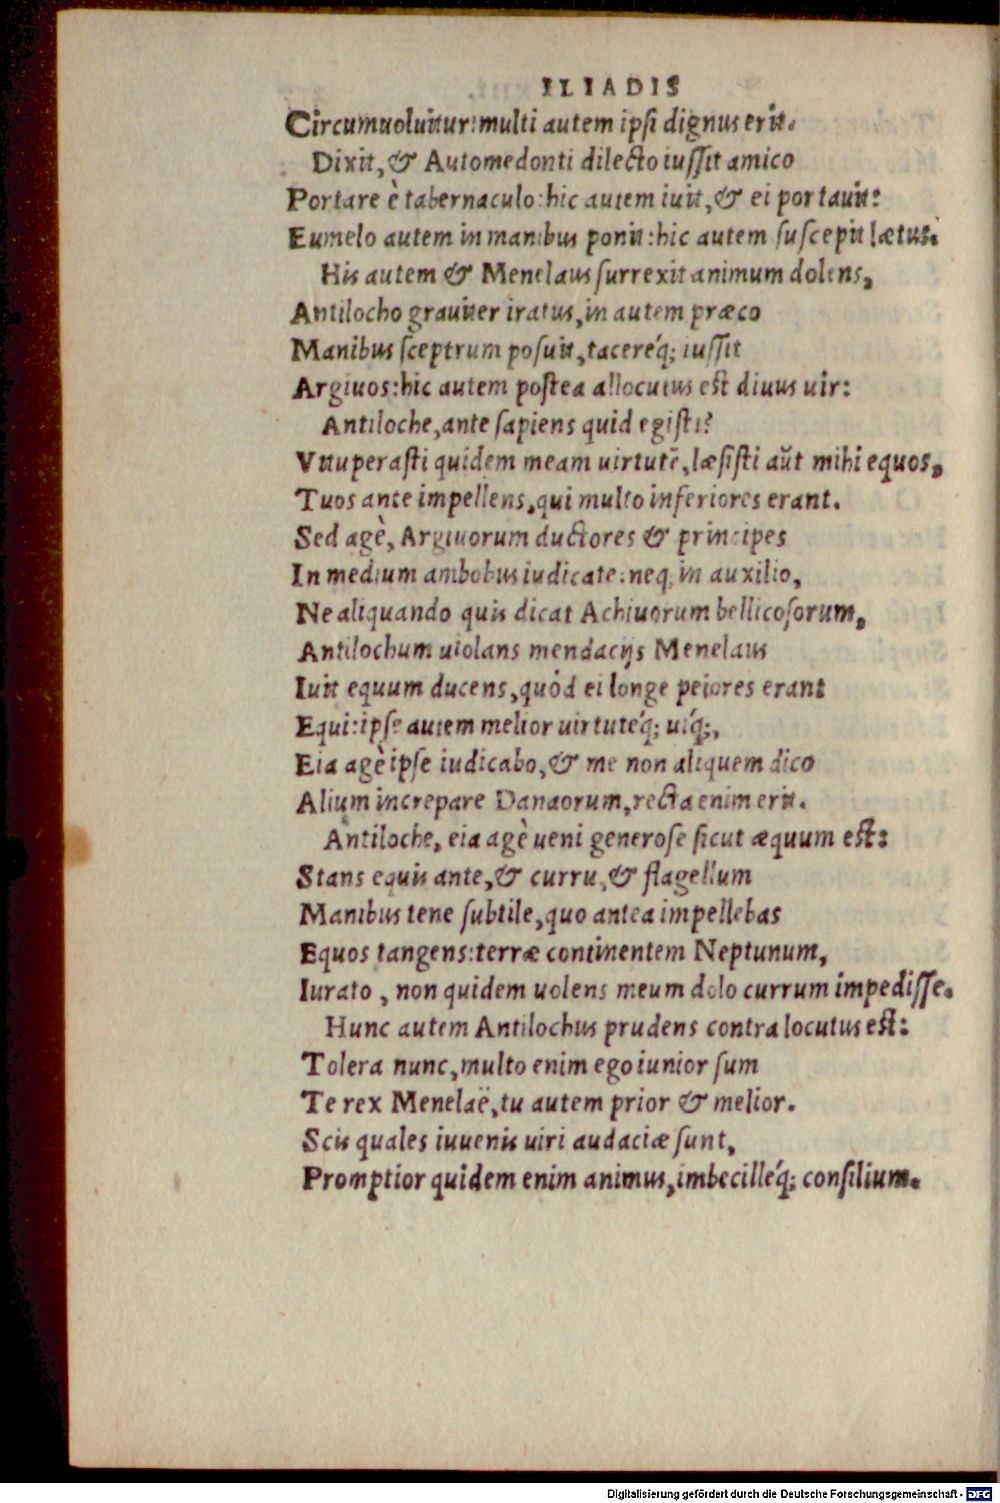 ILIADIS
Circumuoluitur: multi autem ipsi dignus erit.
Dixit, & Automedonti dilecto iussit amico
Portare è tabernaculo: hic autem iuit, & ei portauit:
Eumelo autem in manibus ponit: hic autem suscepit lætus.
His autem & Menelaus surrexit animum dolens,
Antilocho grauiter iratus, in autem præco
Manibus sceptrum posuit, tacereq́; iussit
Argiuos: hic autem postea allocutus est diuus uir:
Antiloche, ante sapiens quid egisti?
Vituperasti quidem meam uirtutē, læsisti aūt mihi equos,
Tuos ante impellens, qui multo inferiores erant.
Sed agè, Argiuorum ductores & principes
In medium ambobus iudicate: neq; in auxilio,
Ne aliquando quis dicat Achiuorum bellicosorum,
Antilochum uiolans mendacijs Menelaus
Iuit equum ducens, quòd ei longe peiores erant
Equi: ipse autem melior uirtuteq́; uiq́;,
Eia agè ipse iudicabo, & me non aliquem dico
Alium increpare Danaorum, recta enim erit.
Antiloche, eia agè ueni generose sicut æquum est:
Stans equis ante, & curru, & flagellum
Manibus tene subtile, quo antea impellebas
Equos tangens: terræ continentem Neptunum,
Iurato, non quidem uolens meum dolo currum impedisse.
Hunc autem Antilochus prudens contra locutus est:
Tolera nunc, multo enim ego iunior sum
Te rex Menelaë, tu autem prior & melior.
Scis quales iuuenis uiri audaciæ sunt,
Promptior quidem enim animus, imbecilleq́; consilium.
Digitalisierung gefördert durch die Deutsche Forschungsgemeinschaft - DFG